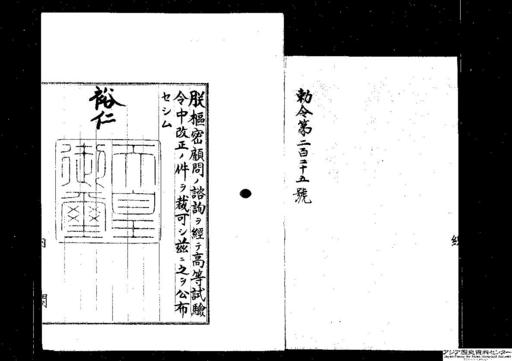 勅令第二百二十五號
朕樞密顧問ノ諮詢ヲ經テ高等試驗
令中改正ノ件ヲ裁可シ茲ニ之ヲ公布
セシム
裕仁
天皇
御璽
内
閣
アジア歴史資料センター
Japan Center for Asian Historical Records